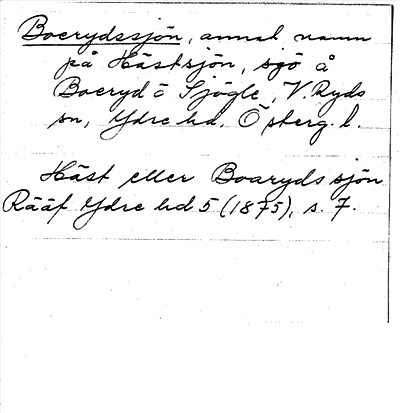 Boerydssjön, annat namn
på Hästsjön, sjö å
Boeryd o Sjögle, V. Ryds
sn, Ydre hd. Österg. l.
Häst eller Boaryds sjön
Rääf Ydre hd 5 (1875), s. 7.